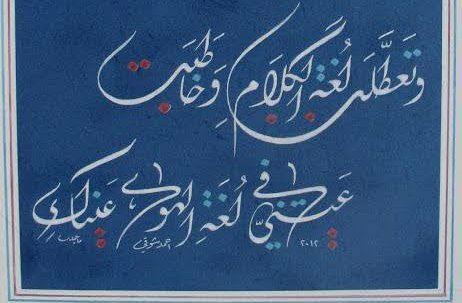 وَتَعَطَّلَت لُغَةُ الكَلَامِ وَخَاطَبَت
عَينَيَّ في لُغَةِ الهَوى عَيناكِ
٢٠١٢ احمد شوقي